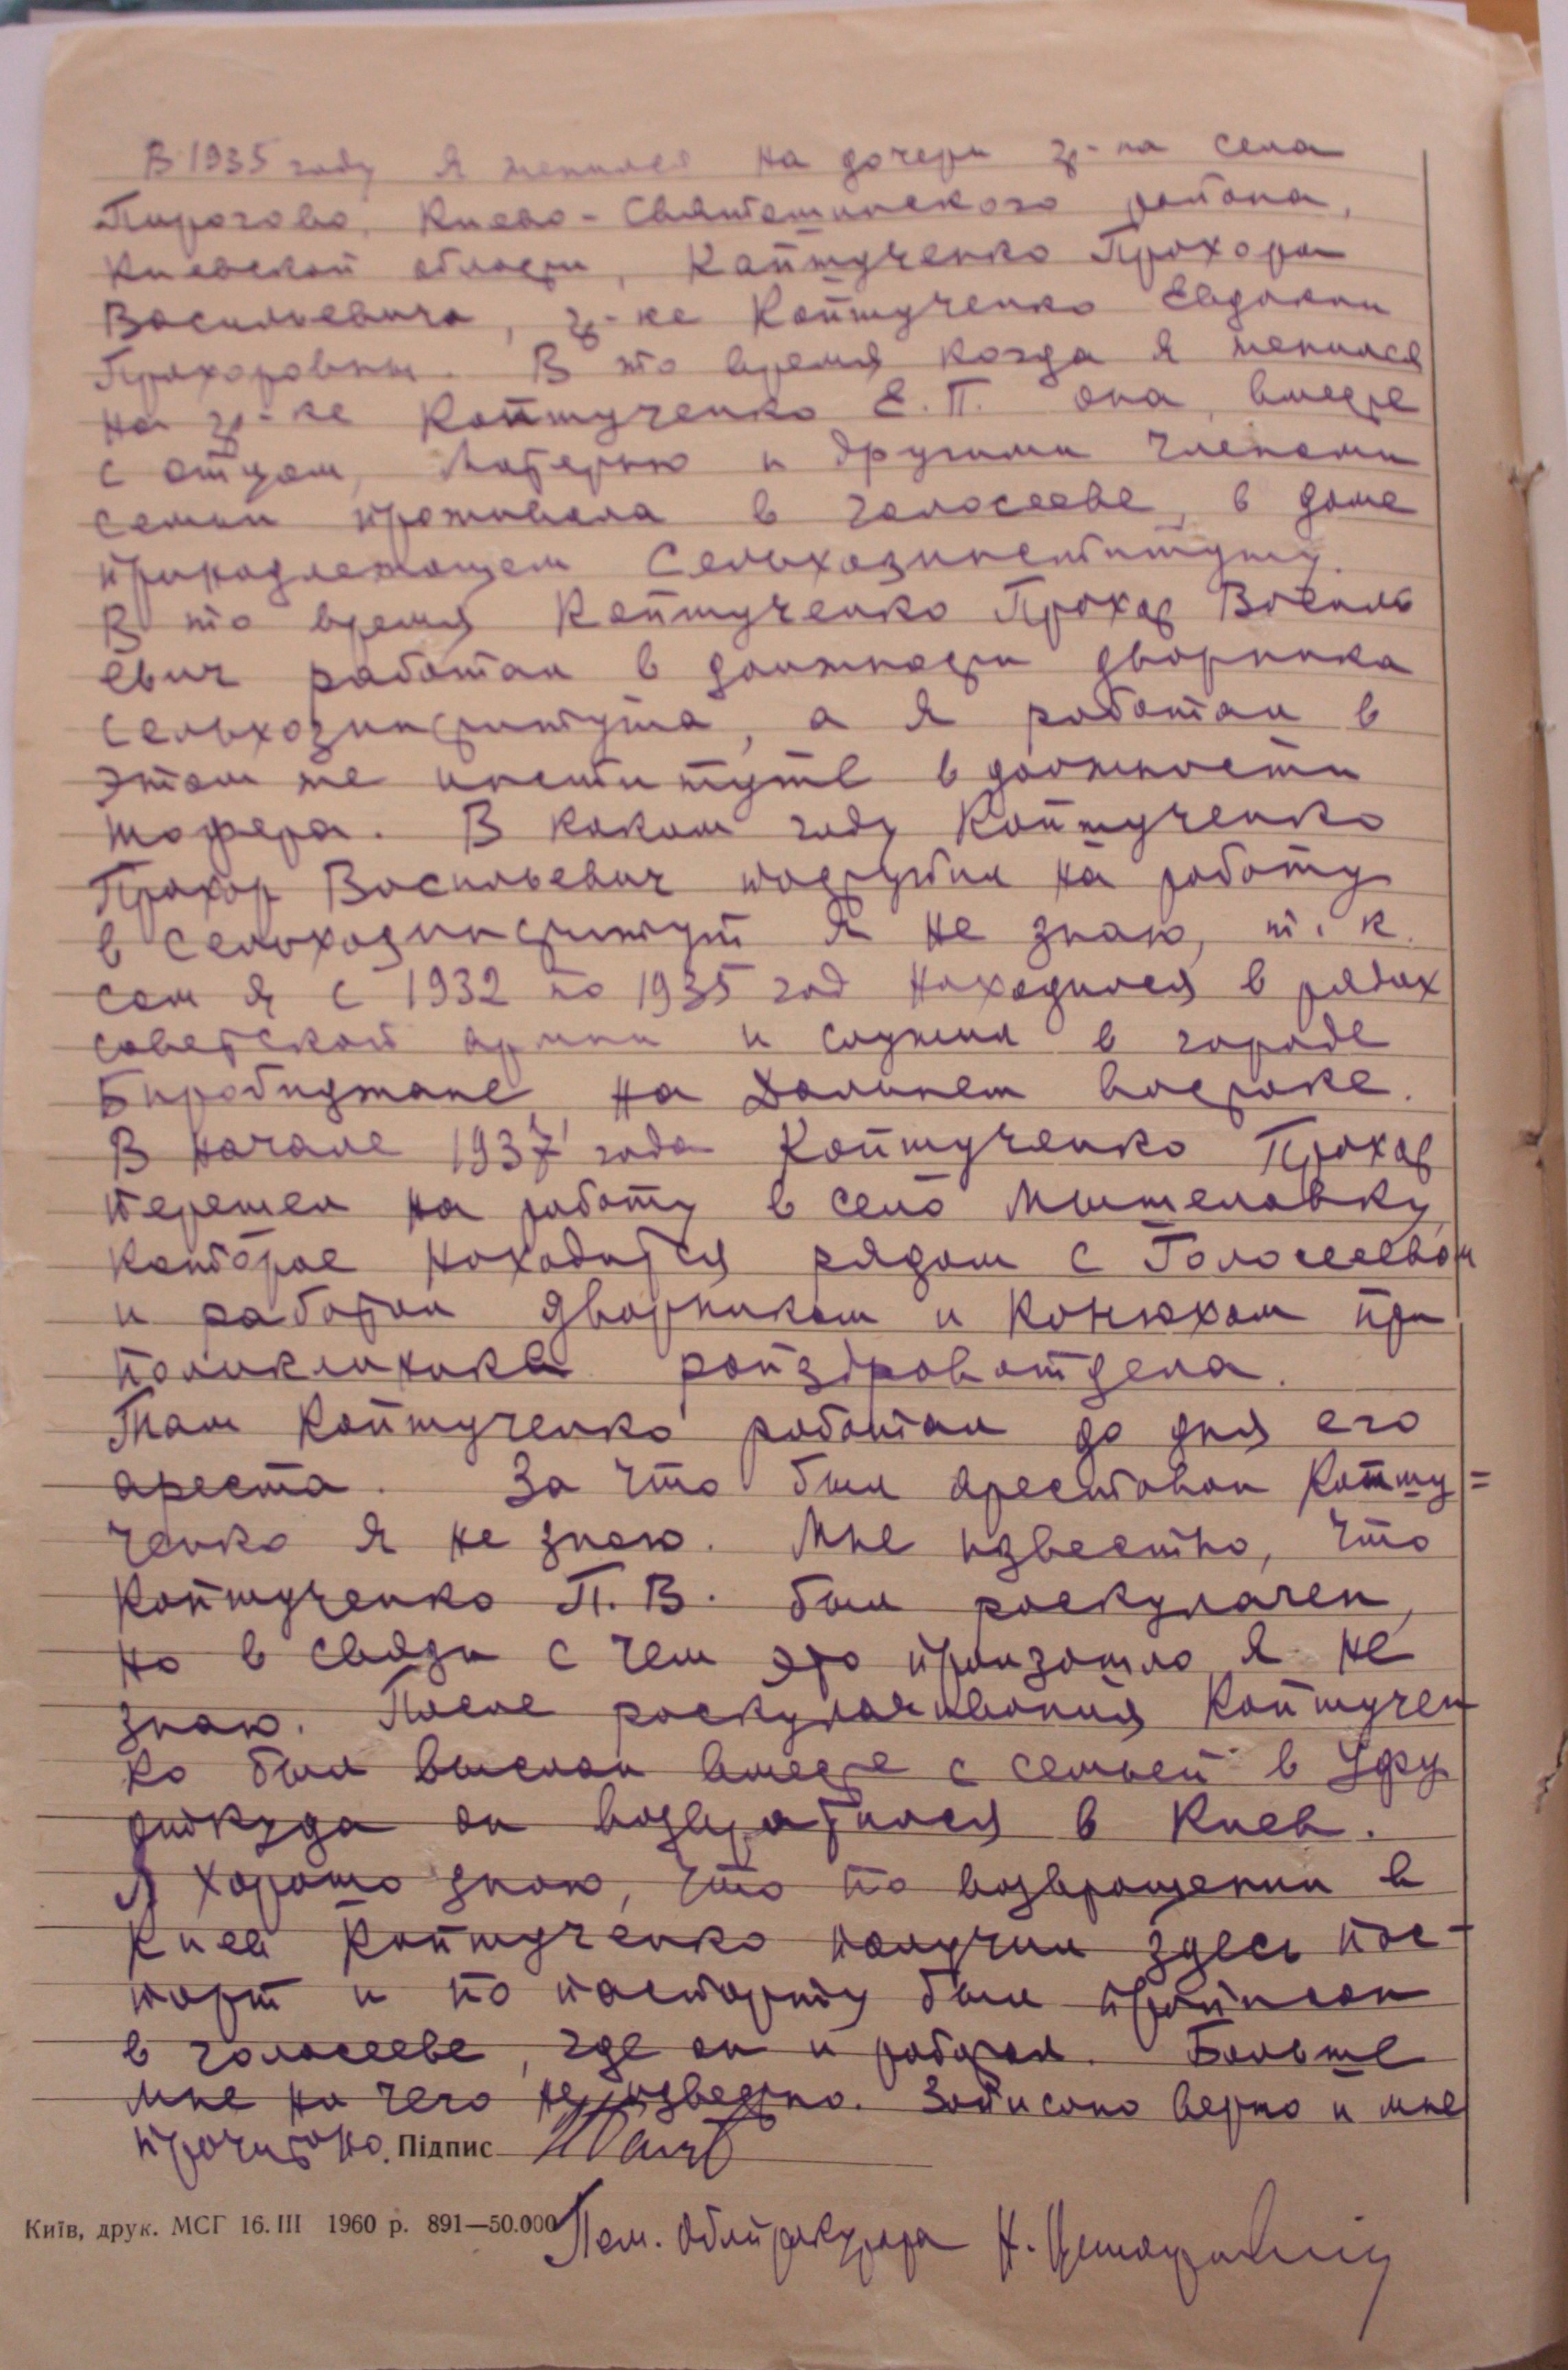 В 1935 году я женился на дочери гр-на села
Пирогово, Киево-Святошинского района,
Киевской области, Коптученко Прохора
Васильевича, гр-ке Коптученко Евдокии
Прохоровны. В то время когда я женился
на гр-ке Коптученко Е.П. она, вместе
с отцом, матерью и другими членами
семьи проживала в голосееве, в доме
принадлежащем Сельхозинституту.
В то время Коптученко Прохор Василь
евич работал в должности дворника
сельхозинститута, а я работал в
этом же институте в должности
шофера. В каком году Коптученко
Прохор Васильевич поступил на работу
в сельхозинститут я не знаю, т.к.
сам я с 1932 по 1935 год находился в рядах
советской армии и служил в городе
Биробиджане на Дальнем востоке.
В начале 1937 года Коптученко Прохор
перешел на работу в село Мышеловку,
которое находится рядом с Голосеевом
и работал дворником и конюхом при
поликлинике райздравотдела.
Там Коптученко работал до дня его
ареста. За что был арестован Копту=
ченко я не знаю. Мне известно, что
Коптученко П.В. был раскулачен,
но в связи с чем это произошло я не
знаю. После раскулачивания Коптучен
ко был выслан вместе с семьей в Уфу
откуда он возвратился в Киев.
Я хорошо знаю, что по возвращении в
Киев Коптученко получил здесь пас-
порт и по паспорту был прописан
в голосееве, где он и работал. Больше
мне ни чего не известно. Записано верно и мне
прочитано. Підпис
Київ, друк. МСГ 16.III 1960 р. 891—50.000
Пом. облпрокурора Н.